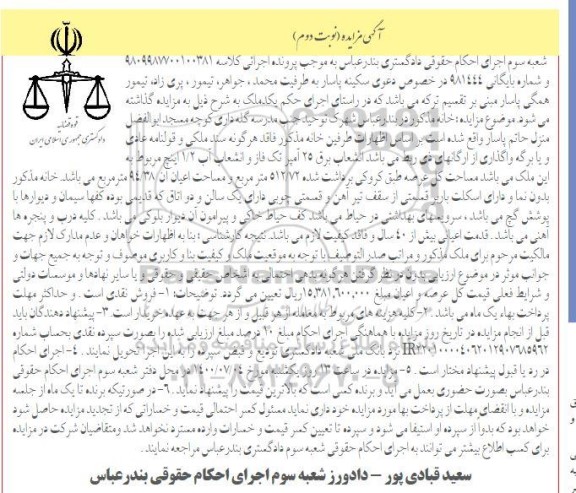 آگهی مزایده (نوبت دوم)
قوه قضاییه
دادگستری جمهوری اسلامی ایران
شعبه سوم اجرای احکام حقوقی دادگستری بندرعباس به موجب پرونده اجرائی کلاسه ۹۸۰۹۹۸۷۷۰۰۱۰۰۳۸۱
و شماره بایگانی ۹۸۱۴۴۴ در خصوص دعوی سکینه پاسار به طرفیت محمد ، جواهر، تیمور ، پری زاد، تیمور
همگی پاسار مبنی بر تقسیم ترکه می باشد که در راستای اجرای حکم یکدملک به شرح ذیل به مزایده گذاشته
می شود. موضوع مزایده: خانه مذکور در بندرعباس شهرک توحید جنب مدرسه گله داری کوچه مسجد ابوالفضل
منزل حاتم پاسار واقع شده است. بر اساس اظهارات طرفین خانه مذکور فاقد هرگونه سند ملکی و قولنامه عادی
و یا برگه واگذاری از ارگانهای ذی ربط می باشد. انشعاب برق ۲۵ آمپر تک فاز و انشعاب آب ۱/۲ اینچ مربوط به
این ملک می باشد مساحت کل عرصه طبق کروکی برداشت شده ۵۱۲/۷۲ متر مربع و مساحت اعیان آن ۹۴/۳۸ مترمربع می باشد. خانه مذکور
بدون نما و دارای اسکلت باربر قسمتی از سقف تیر آهن و قسمتی چوبی دارای یک سالن و دو اتاق که قدیمی بوده کفها سیمان و دیوارها با
پوشش گچ می باشد ، سرویسهای بهداشتی در حیاط می باشد کف حیاط خاکی و پیرامون آن دیوار بلوکی می باشد. کلیه درب و پنجره ها
آهنی می باشد. قدمت اعیانی بیش از ۴۰ سال و فاقد کیفیت لازم می باشد. نتیجه کارشناسی : بنا به اظهارات خواهان و عدم مدارک لازم جهت
مالکیت مرحوم برای ملک مذکور و مراتب صدرالتوصیف با توجه به موقعیت ملک و کیفیت بنا و کاربری موصوف و توجه به جمیع جهات و
جوانب موثر در موضوع ارزیابی بدون در نظر گرفتن هرگونه بدهی احتمالی به اشخاص حقیقی و حقوقی و یا سایر نهادها و موسسات دولتی
و شرایط فعلی قیمت کل عرصه و اعیان مبلغ ۱۵,۳۸۱,۶۰۰,۰۰۰ ریال تعیین می گردد. توضیحات: ۱- فروش نقدی است . و حداکثر مهلت
پرداخت بهاء یک ماه می باشد . ۲- کلیه هزینه های مربوط به معامله از هر قبیل و از هر جهت به عهده خریدار است . ۳- پیشنهاد دهندگان باید
قبل از انجام مزایده در تاریخ روز مزایده با هماهنگی اجرای احکام مبلغ ۱۰ درصد مبلغ ارزیابی شده را بصورت سپرده نقدی بحساب شماره
نزد بانک ملی شعبه دادگستری تودیع و فیض سپرده را به این اجرا تحویل نمایند . ۴- اجرای احکام
در رد یا قبول پیشنهاد مختار است . ۵- مزایده در ساعت ۱۳ روز یکشنبه مورخ ۱۴۰۰/۰۷/۰۴ محل دفتر شعبه سوم اجرای احکام حقوقی
بندرعباس بصورت حضوری بعمل می آید و برنده کسی است که بالاترین قیمت را پیشنهاد نماید. ۶- در صورتیکه برنده تا یک ماه از جلسه
مزایده و با انقضای مهلت از پرداخت بها مورد مزایده خودداری نماید مسئول کسر احتمالی قیمت و خساراتی که از تجدید مزایده حاصل شود
خواهد بود که بدوا از سپرده او استیفا می شود و سپرده تا تعیین کسر قیمت و خسارات وارده مسترد نخواهد شد ومتقاضیان شرکت در مزایده
برای کسب اطلاع بیشتر می توانند به اجرای احکام حقوقی شعبه سوم دادگستری بندرعباس مراجعه نمایند .
سعید قبادی پور – دادورز شعبه سوم اجرای احکام حقوقی بندرعباس